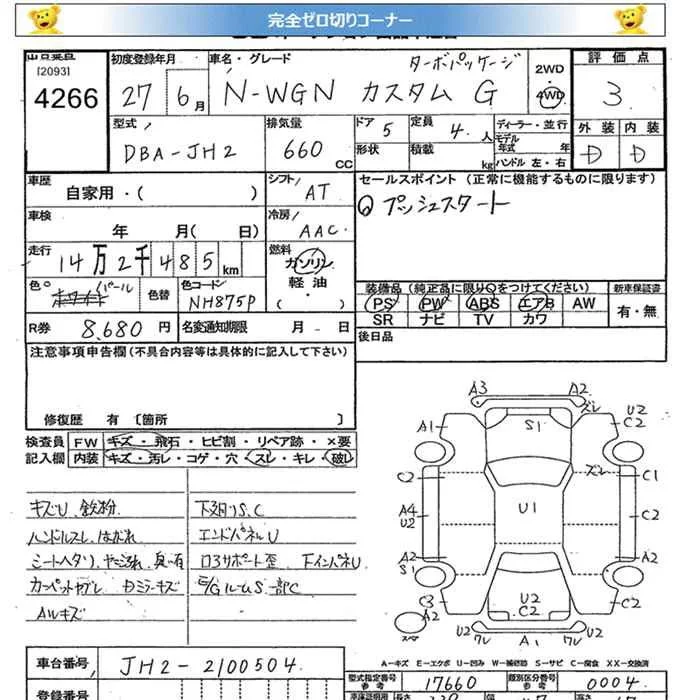 完全ゼロ切りコーナー
[2093]
4266
初度登録年月
27 6月
車名・グレード
ターボパッケージ
N-WGN カスタム G
2WD
4WD
評価点
3
型式
DBA-JH2
排気量
660 CC
ドア 5
形状
定員 4. 人
積載 kg
ディーラー・並行
モデル年式 年
ハンドル 左・右
外装 内装
D D
車歴
自家用・( )
シフト
AT
車検
年 月( 日)
冷房
AAC
走行
14万2千485km
燃料
ガソリン
軽油
・( )
色
パール
色替
色コード
NH875P
R券 8,680 円
名変通知期限 月 日
セールスポイント(正常に機能するものに限ります)
プッシュスタート
装備品(純正品に限り○をつけてください)
新車保証書
PS PW ABS エアB AW
SR ナビ TV カワ
有・無
後日品
注意事項申告欄(不具合内容等は具体的に記入して下さい)
修復歴 有 〔箇所 〕
検査員記入欄
FW キズ・飛石・ヒビ割・リペア跡・×要
内装 キズ・汚レ・コゲ・穴・スレ・キレ・破レ
キズU、鉄粉
ハンドルスレ、はがれ
シートヘタリ、ヤニ汚れ、臭い有
AWキズ
下廻りS、C
エンドパネルU
コアサポート歪 下インパネU
E/GルームS 一部C
A3 A2
ズレ
A1 S1 U2 C2
C2 ズレ C1
A4 U2 U1 C2
A2 S1 A2
C3 A2 U2 C2 U2 C2
スペア U2 ワレ A1 ワレ U2
A-キズ E-エクボ U-凹み W-補修跡 S-サビ C-腐食 XX-交換済
車台番号 JH2-2100504
型式指定番号 17660
類別区分番号 0004
登録番号